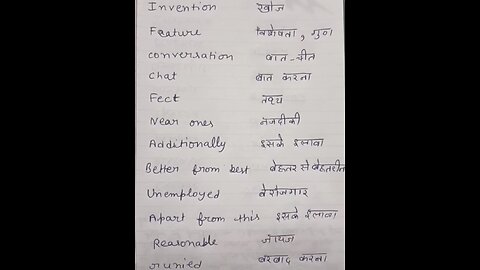 Invention खोज
Feature विशेषता, गुण
conversation बात-चीत
chat बात करना
Fect तथ्य
Near ones नजदीकी
Additionally इसके इलावा
Better from best बेहतर से बेहतरीन
Unemployed बेरोजगार
Apart from this इसके इलावा
Reasonable जायज
runied बरबाद करना